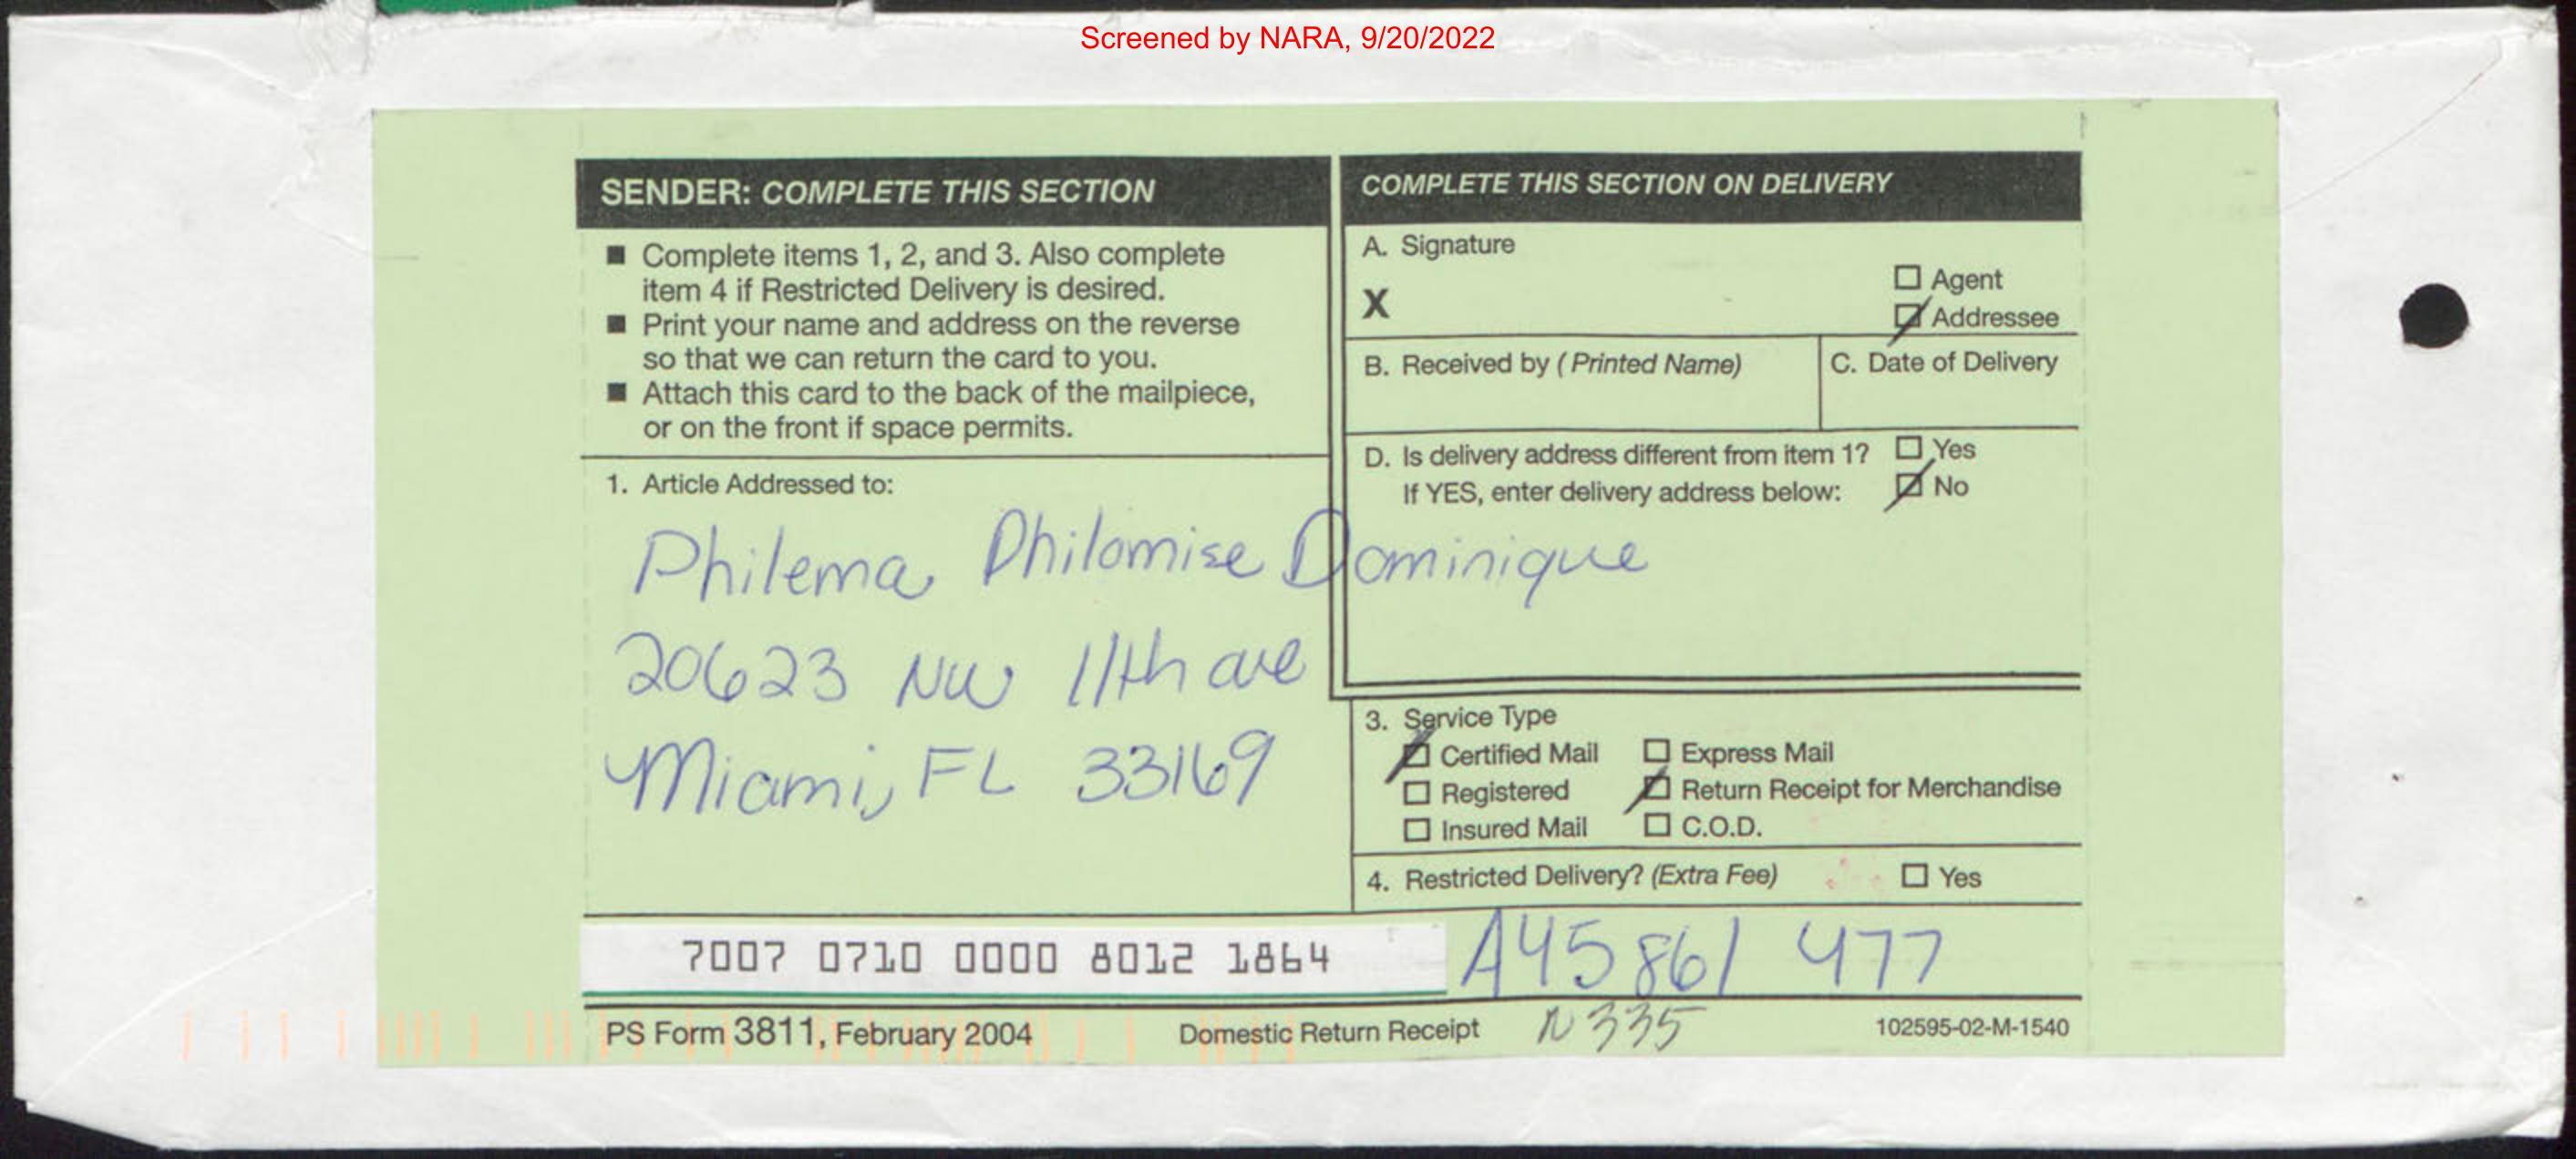 Screened by NARA, 9/20/2022
SENDER: COMPLETE THIS SECTION
■ Complete items 1, 2, and 3. Also complete
item 4 if Restricted Delivery is desired.
■ Print your name and address on the reverse
so that we can return the card to you.
■ Attach this card to the back of the mailpiece,
or on the front if space permits.
1. Article Addressed to:
Philema Philomise Dominique
20623 NW 11th ave
Miami, FL 33169
COMPLETE THIS SECTION ON DELIVERY
A. Signature
X
☐ Agent
☑ Addressee
B. Received by (Printed Name)
C. Date of Delivery
D. Is delivery address different from item 1? ☐ Yes
If YES, enter delivery address below: ☑ No
3. Service Type
☑ Certified Mail ☐ Express Mail
☐ Registered ☑ Return Receipt for Merchandise
☐ Insured Mail ☐ C.O.D.
4. Restricted Delivery? (Extra Fee) ☐ Yes
7007 0710 0000 8012 1864
A45 861 477
PS Form 3811, February 2004 Domestic Return Receipt N335 102595-02-M-1540